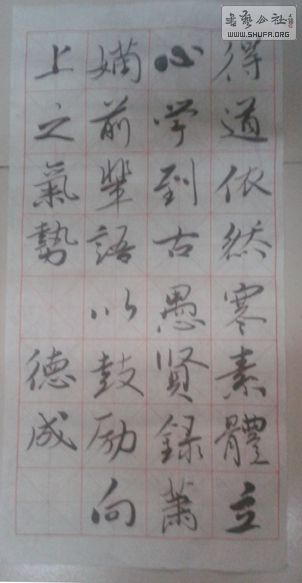 書藝公社
WWW.SHUFA.ORG
得道依然寒素體立
心学到古愚賢録蕭
嫻前輩語以鼓励向
上之氣勢 德成